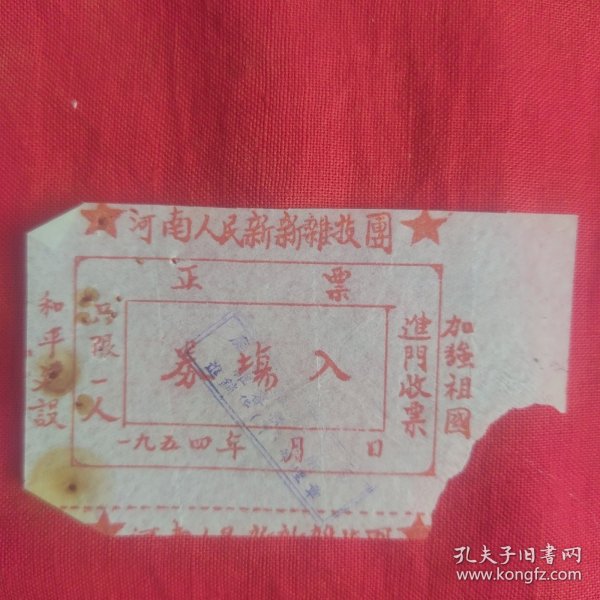 ★河南人民新新雜技團★
正票
入場券
進門收票
只限一人
一九五四年 月 日
加強祖國
和平建設
★河南人民新新雜技團★
孔夫子旧书网
www.kongfz.com